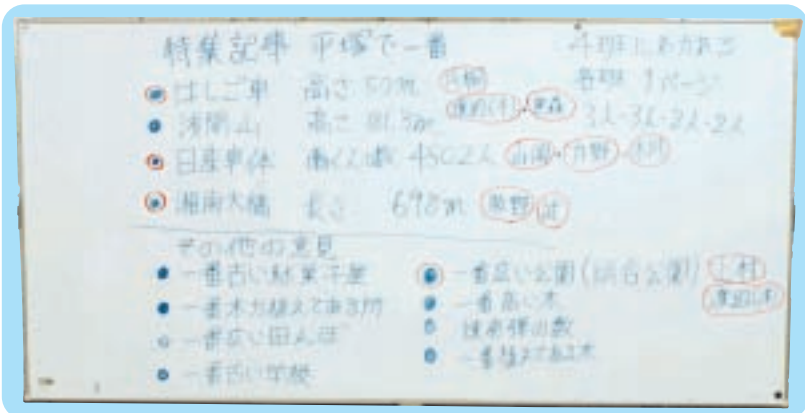 特集記事 平塚で一番
4班にわかれる
各班 1ページ
3人-3人-2人-2人
はしご車 高さ 50m
浅間山 高さ 81.3m
日産車体 働く人数 4502人
湘南大橋 長さ 698m
その他の意見
一番古い駄菓子屋
一番木が植えてある所
一番広い田んぼ
一番古い学校
一番広い公園(総合公園)
一番高い木
一番植えてある木